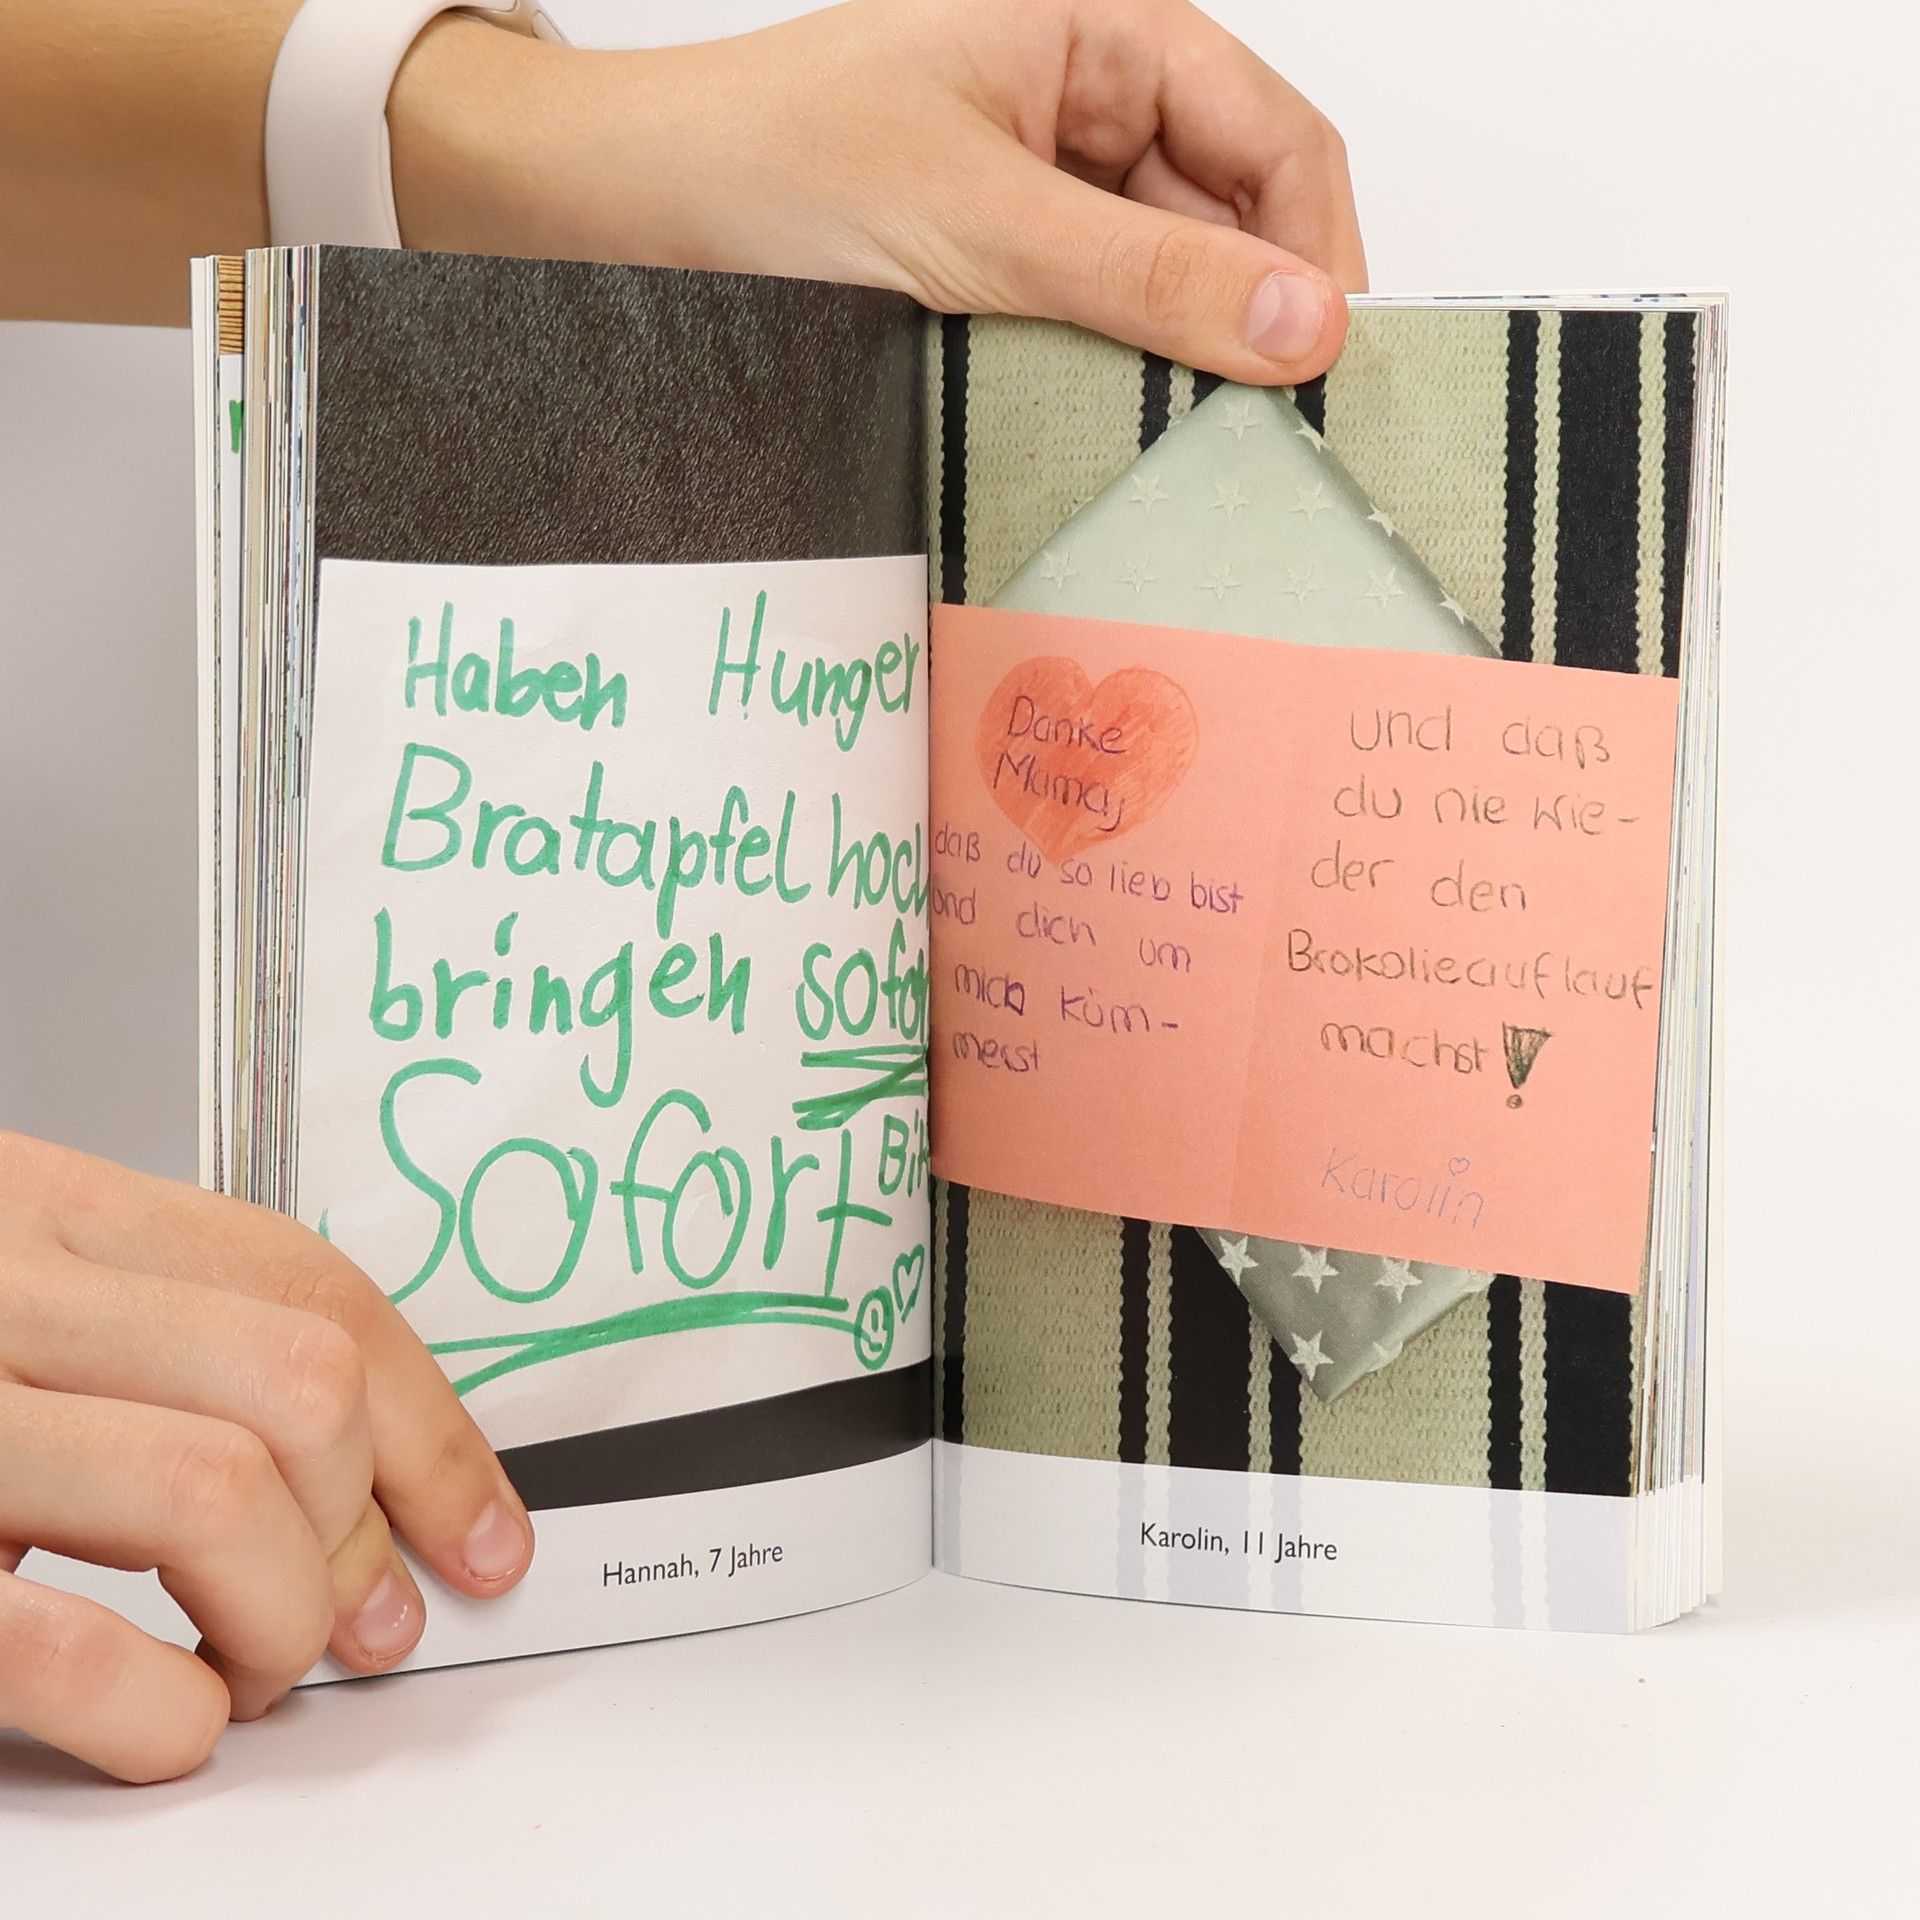 Haben Hunger
Bratapfel hoch
bringen sofor
Sofort Bit
Hannah, 7 Jahre
Danke
Mamay
daß du so lieb bist
und dich um
mich küm-
merst
und daß
du nie wie-
der den
Brokolieauflauf
machst!
Karolin
Karolin, 11 Jahre